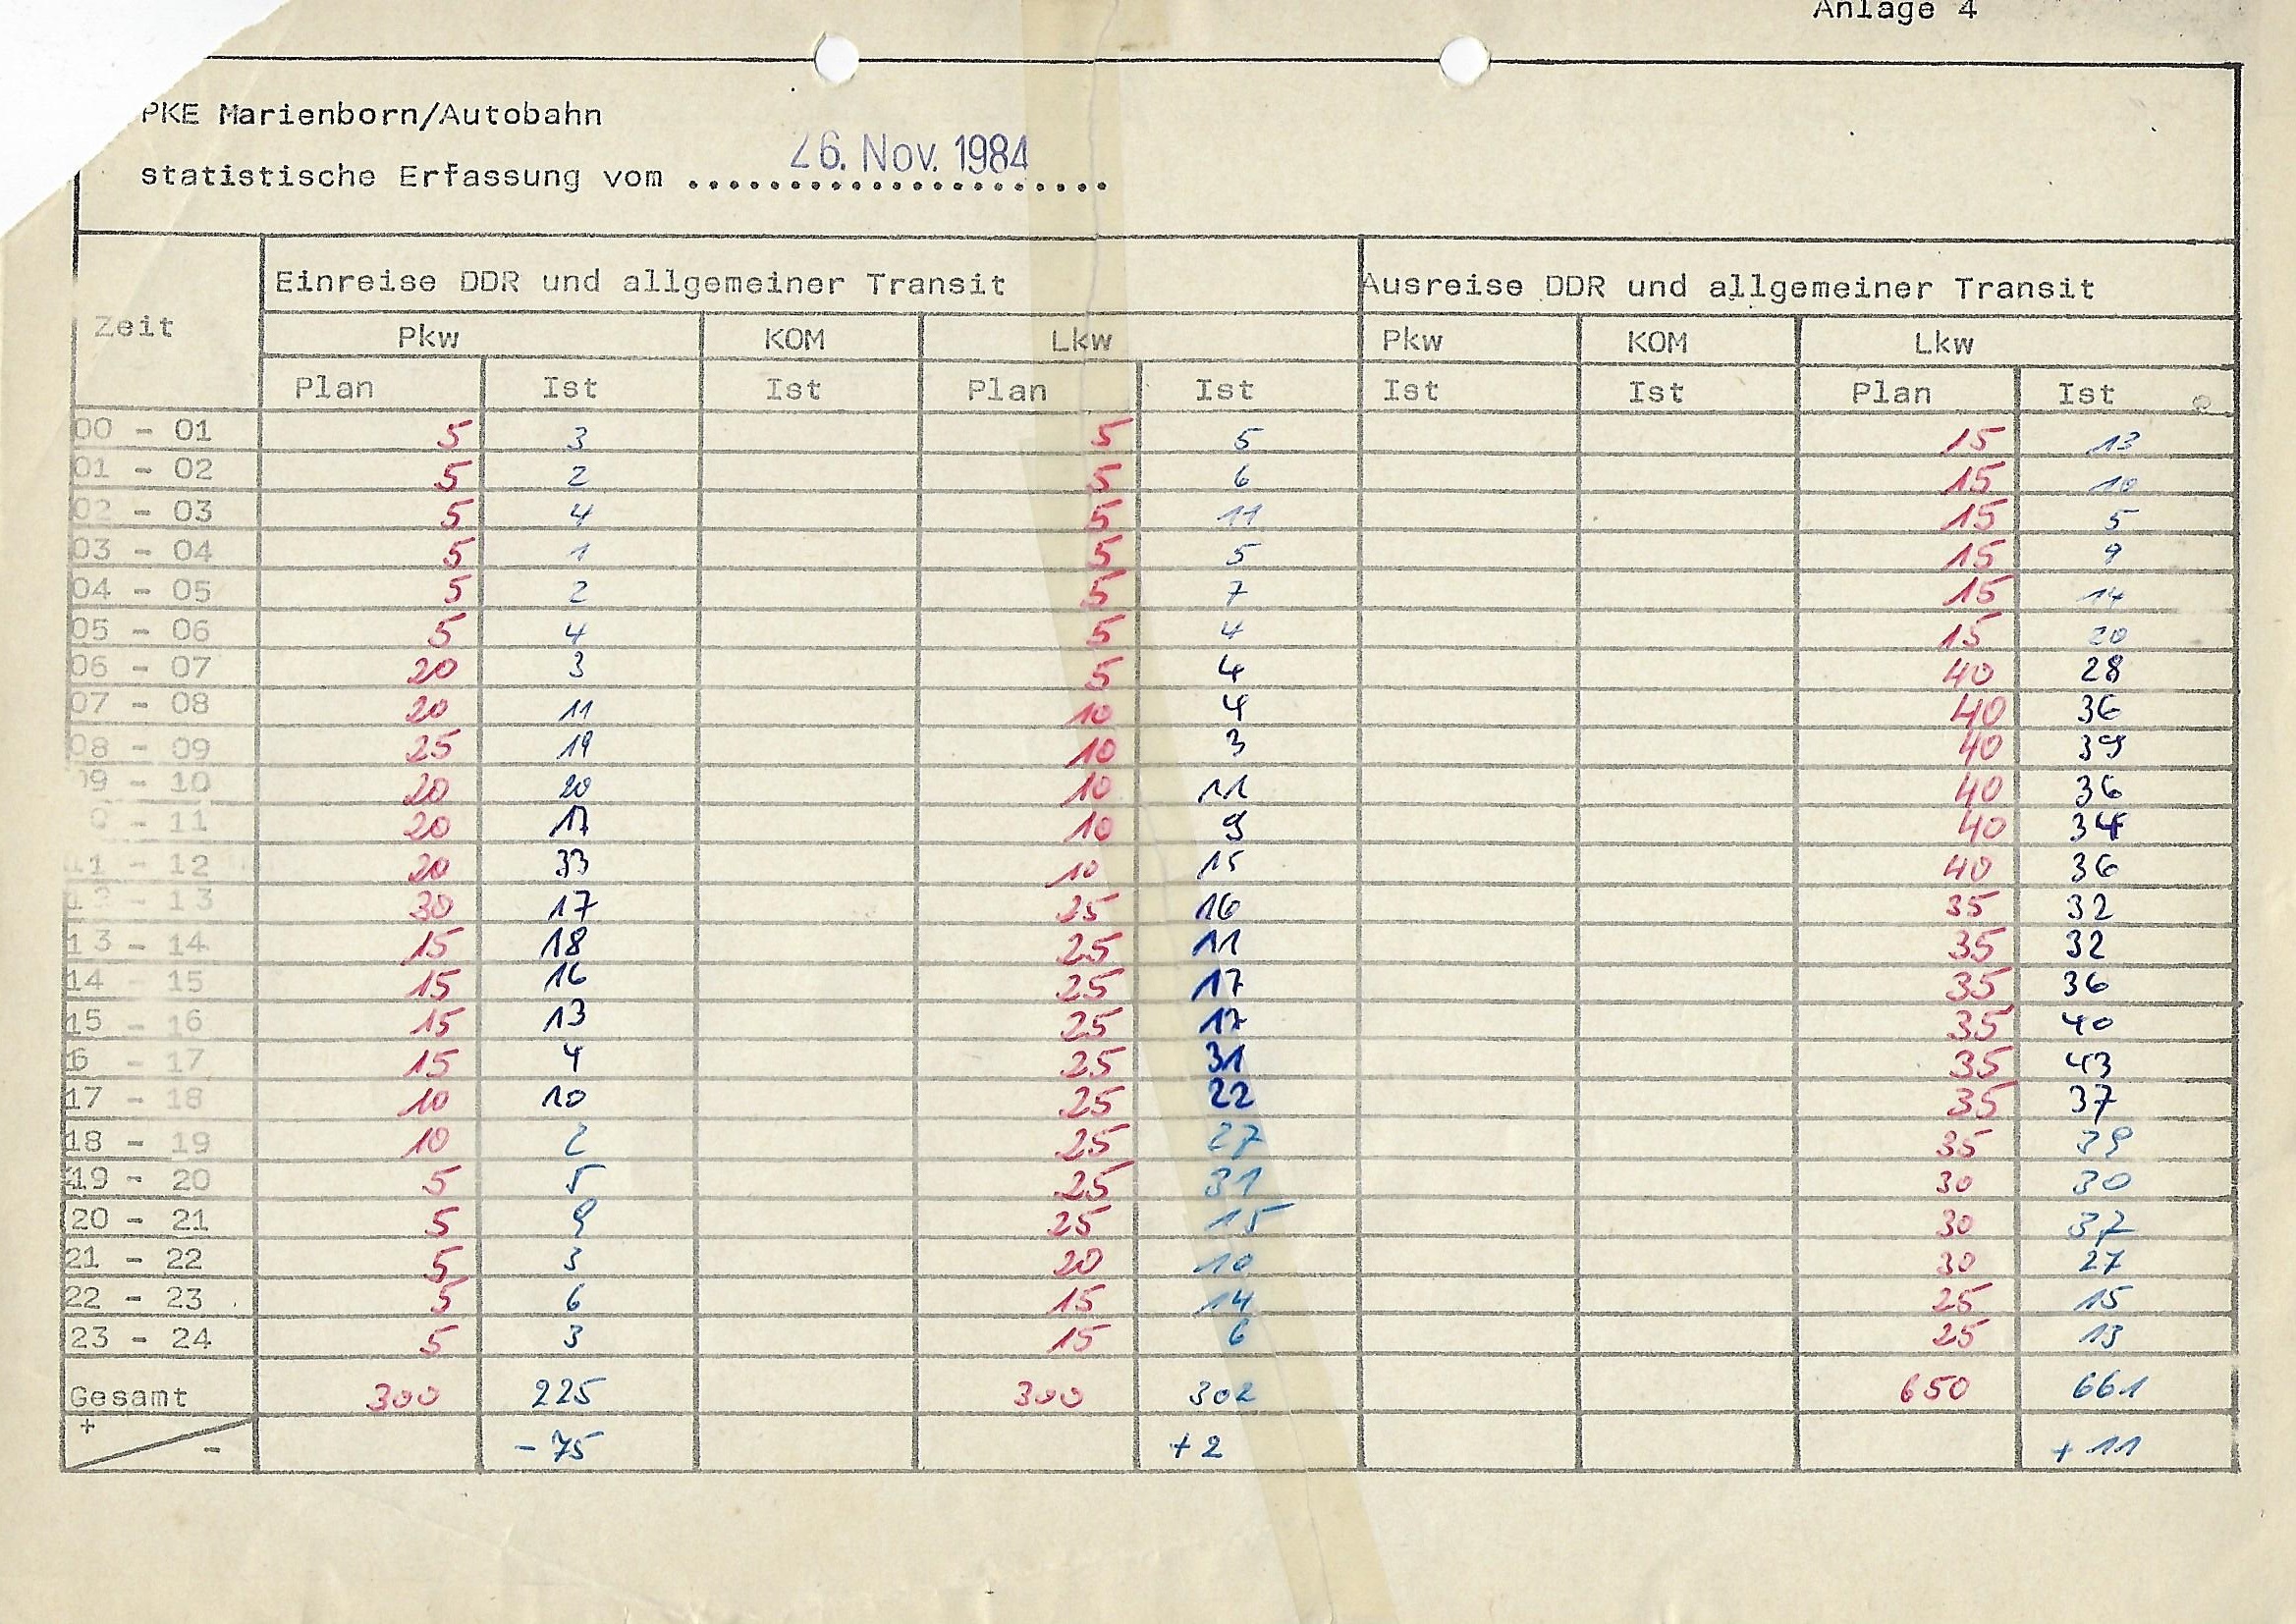 Anlage 4
PKE Marienborn/Autobahn
statistische Erfassung vom ...................... 26. Nov. 1984
Zeit Einreise DDR und allgemeiner Transit Ausreise DDR und allgemeiner Transit
Pkw KOM Lkw Pkw KOM Lkw
Plan Ist Ist Plan Ist Ist Ist Plan Ist
00 - 01 5 3 5 5 15 13
01 - 02 5 2 5 6 15 10
02 - 03 5 4 5 11 15 5
03 - 04 5 1 5 5 15 9
04 - 05 5 2 5 7 15 14
05 - 06 5 4 5 4 15 20
06 - 07 20 3 5 4 40 28
07 - 08 20 11 10 4 40 36
08 - 09 25 19 10 3 40 39
09 - 10 20 20 10 11 40 36
0 - 11 20 17 10 9 40 34
11 - 12 20 33 10 15 40 36
12 - 13 30 17 25 16 35 32
13 - 14 15 18 25 11 35 32
14 - 15 15 16 25 17 35 36
15 - 16 15 13 25 17 35 40
6 - 17 15 4 25 31 35 43
17 - 18 10 10 25 22 35 37
18 - 19 10 2 25 27 35 39
19 - 20 5 5 25 31 30 30
20 - 21 5 9 25 15 30 37
21 - 22 5 3 20 10 30 27
22 - 23 5 6 15 14 25 15
23 - 24 5 3 15 6 25 13
Gesamt 300 225 300 302 650 661
+ - - 75 + 2 + 11